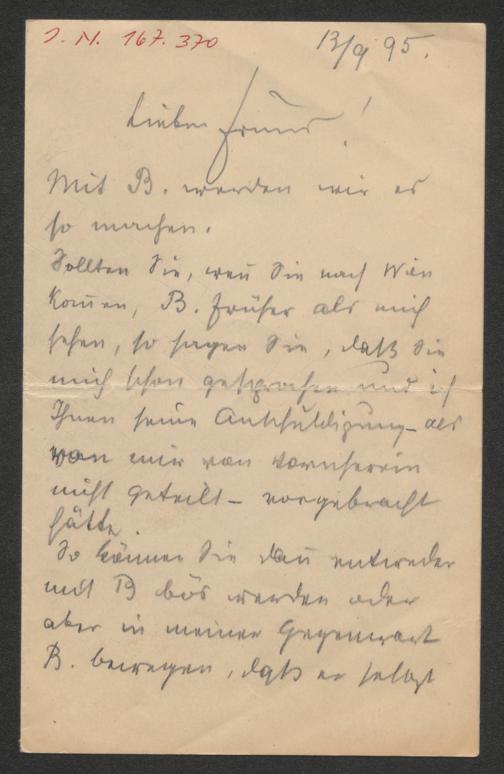 J. N. 167.370
13/9 95.
Lieber Freund!
Mit B. werden wir es
so machen.
Sollten Sie, weñ Sie nach Wien
kom̄en, B. früher als mich
sehen, so sagen Sie, daß Sie
mich schon gesprochen und ich
Ihnen seine Anschuldigung – als
von mir von vornherein
nicht geteilt – vorgebracht
hätte.
So können Sie dañ entweder
mit B bös werden oder
aber in meiner Gegenwart
B. bewegen, daß er selbst